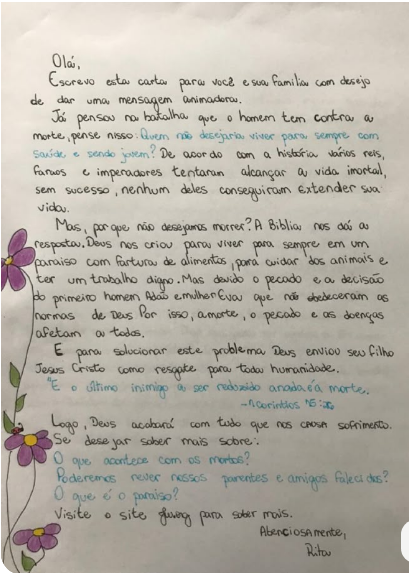 Olá,
Escrevo esta carta para você e sua familia com desejo
de dar uma mensagem animadora.
Já pensou na batalha que o homem tem contra a
morte, pense nisso: Quem não desejaria viver para sempre com
saúde e sendo jovem? De acordo com a história vários reis,
faraós e imperadores tentaram alcançar a vida imortal,
sem sucesso, nenhum deles conseguiram extender sua
vida.
Mas, porque não desejamos morrer? A Bíblia nos dá a
resposta. Deus nos criou para viver para sempre em um
paraíso com fartura de alimentos, para cuidar dos animais e
ter um trabalho digno. Mas devido o pecado e a decisão
do primeiro homem Adão e mulher Eva que não obedeceram as
normas de Deus Por isso, a morte, o pecado e as doenças
afetam a todos.
E para solucionar este problema Deus enviou seu filho
Jesus Cristo como resgate para toda humanidade.
"E o último inimigo a ser reduzido a nada é a morte.
-1 Coríntios 15:26
Logo, Deus acabará com tudo que nos causa sofrimento.
Se desejar saber mais sobre:
O que acontece com os mortos?
Poderemos rever nossos parentes e amigos falecidos?
O que é o paraíso?
Visite o site para saber mais.
Atenciosamente,
Rita